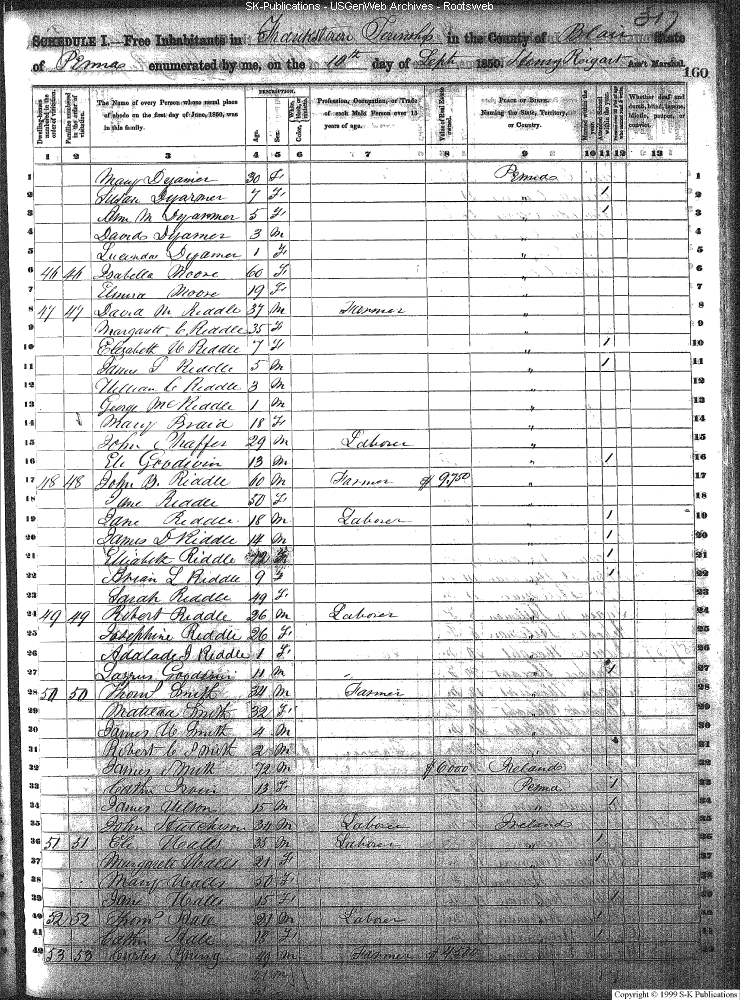 SK-Publications - USGenWeb Archives - Rootsweb
317
SCHEDULE I.—Free Inhabitants in Frankstown Township in the County of Blair State
of Penna enumerated by me, on the 10th day of Sept 1850. Henry Roigart Ass't Marshal.
160
Dwelling-houses numbered in the order of visitation.
Families numbered in the order of visitation.
The Name of every Person whose usual place of abode on the first day of June, 1850, was in this family.
DESCRIPTION.
Age.
Sex.
Color, White, black, or mulatto.
Profession, Occupation, or Trade of each Male Person over 15 years of age.
Value of Real Estate owned.
PLACE OF BIRTH. Naming the State, Territory, or Country.
Married within the year.
Whether deaf and dumb, blind, insane, idiotic, pauper, or convict.
1 2 3 4 5 6 7 8 9 10 11 12 13
1 Mary Dyamer 30 F Penna 1
2 Susan Dyarmer 7 F " / 2
3 Ann M Dyarmer 5 F " / 3
4 David Dyamer 3 M " 4
5 Lucinda Dyamer 1 F " 5
6 46 46 Isabella Moore 60 F " 6
7 Elmira Moore 19 F " 7
8 47 47 David M Riddle 37 M Farmer " 8
9 Margarett C Riddle 35 F " 9
10 Elizabeth Riddle 7 F " / 10
11 James Riddle 5 M " / 11
12 William C Riddle 3 M " 12
13 George Mc Riddle 1 M " 13
14 Mary Braid 18 F " 14
15 John Shaffer 29 M Laborer " 15
16 Eli Goodwin 13 M " / 16
17 48 48 John Riddle 60 M Farmer $ 9,750 " 17
18 Jane Riddle 50 F " 18
19 Riddle 18 M Laborer " / 19
20 James D Riddle 14 M " / 20
21 Elizabeth Riddle 12 F " / 21
22 L Riddle 9 F " / 22
23 Sarah Riddle 49 F " 23
24 49 49 Robert Riddle 26 M Laborer " 24
25 Josephine Riddle 26 F " 25
26 Adalade J Riddle 1 F " 26
27 11 M " / 27
28 50 50 Thom Smith 34 M Farmer " 28
29 Matilda Smith 32 F " 29
30 James Smith 4 M " 30
31 Robert C Smith 2 M " 31
32 James Smith 72 M $ 6000 Ireland 32
33 Cathn Irvin 13 F Penna / 33
34 James Nelson 15 M " / 34
35 John Hutchison 34 M Laborer Ireland 35
36 51 51 Eli Walls 35 M Laborer " / 36
37 Margarett Walls 21 F / 37
38 Mary Walls 50 F 38
39 Jane Walls 15 F / 39
40 52 52 Thom Hale 21 M Laborer / 40
41 Cathn Hale 18 F / 41
42 53 53 49 M Farmer $ 4500 42
Copyright © 1999 S-K Publications